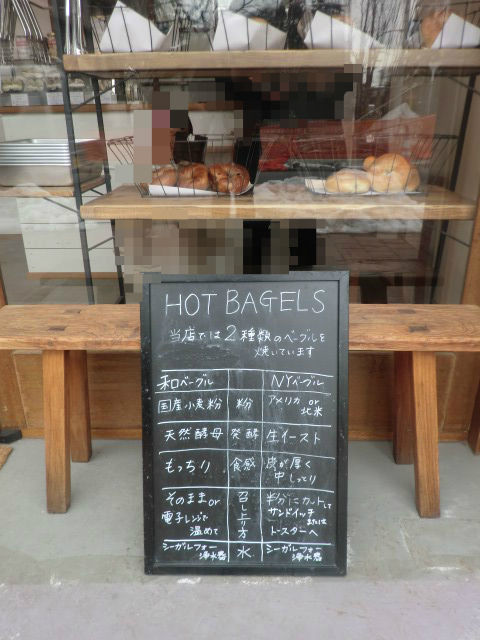 HOT BAGELS
当店では2種類のベーグルを
焼いています
和ベーグル NYベーグル
国産小麦粉 粉 アメリカ or
北米
天然酵母 発酵 生イースト
もっちり 食感 皮が厚く
中しっとり
そのまま or
電子レンジで
温めて
召し上り方
半分にカットして
サンドイッチ
または
トースターへ
シーガルフォー
浄水器
水
シーガルフォー
浄水器